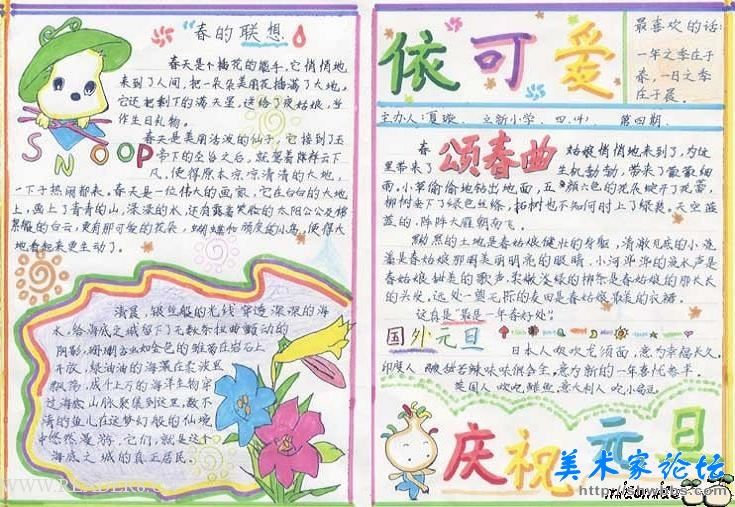 春的联想
春天是个插花的能手,它悄悄地
来到了人间,把一朵朵美丽花插满了大地,
它还把剩下的满天星,送给了夜姑娘,当
作生日礼物。
春天是美丽活泼的仙子,它接到玉
帝下的圣旨之后,就驾着祥云下
凡,使得原本凉凉清清的大地,
一下子热闹起来。春天是一位伟大的画家,它在白白的大地
上,画上了青青的山,深深的水,还有露着笑脸的太阳公公及棉
絮般的白云,更有那可爱的花朵,蝴蝶和的小鸟,使得大
地看起来更生动了。
SNOOP
清晨,银丝般的光线穿透深深的海
水,给海底之城留下了无数条扭曲颤动的
阴影,珊瑚如金色的雏菊在岩石上
开放,绿油油的海藻在柔波里
飘荡,成千上万的海洋生物穿
过海底山脉聚集到这里,数不
清的鱼儿在这梦幻般的仙境
中悠然漫游,它们,就是这个
海底之城的真正居民。
依可爱
最喜欢的话:
一年之季在于
春,一日之季
在于晨。
主办人:夏璇 立新小学 四.(4) 第四期
颂春曲
春姑娘悄悄地来到了,为这
里带来了生机勃勃,带来了微微细
雨。小草偷偷地钻出地面,五颜六色的花朵绽开了花蕾,
柳树垂下了绿色丝绦,柘树也不知何时上了绿装。天空蓝
蓝的,阵阵大雁朝南飞。
黝黑的土地是春姑娘健壮的身躯,清澈见底的小
是春姑娘那明亮的眼睛,小河的流水声是
春姑娘甜美的歌声,嫩浅绿的柳条是春姑娘的长长
的头发,远处一望无际的农田是春姑娘的衣裙。
这真是“最是一年春好处”。
国外元旦
日本人吹吹龙须面,意为幸福长久。
印度人 酸甜苦辣味味俱全,意为新的一年
英国人 吹吃鲱鱼,意大利人吃小
庆祝元旦
美术家论坛